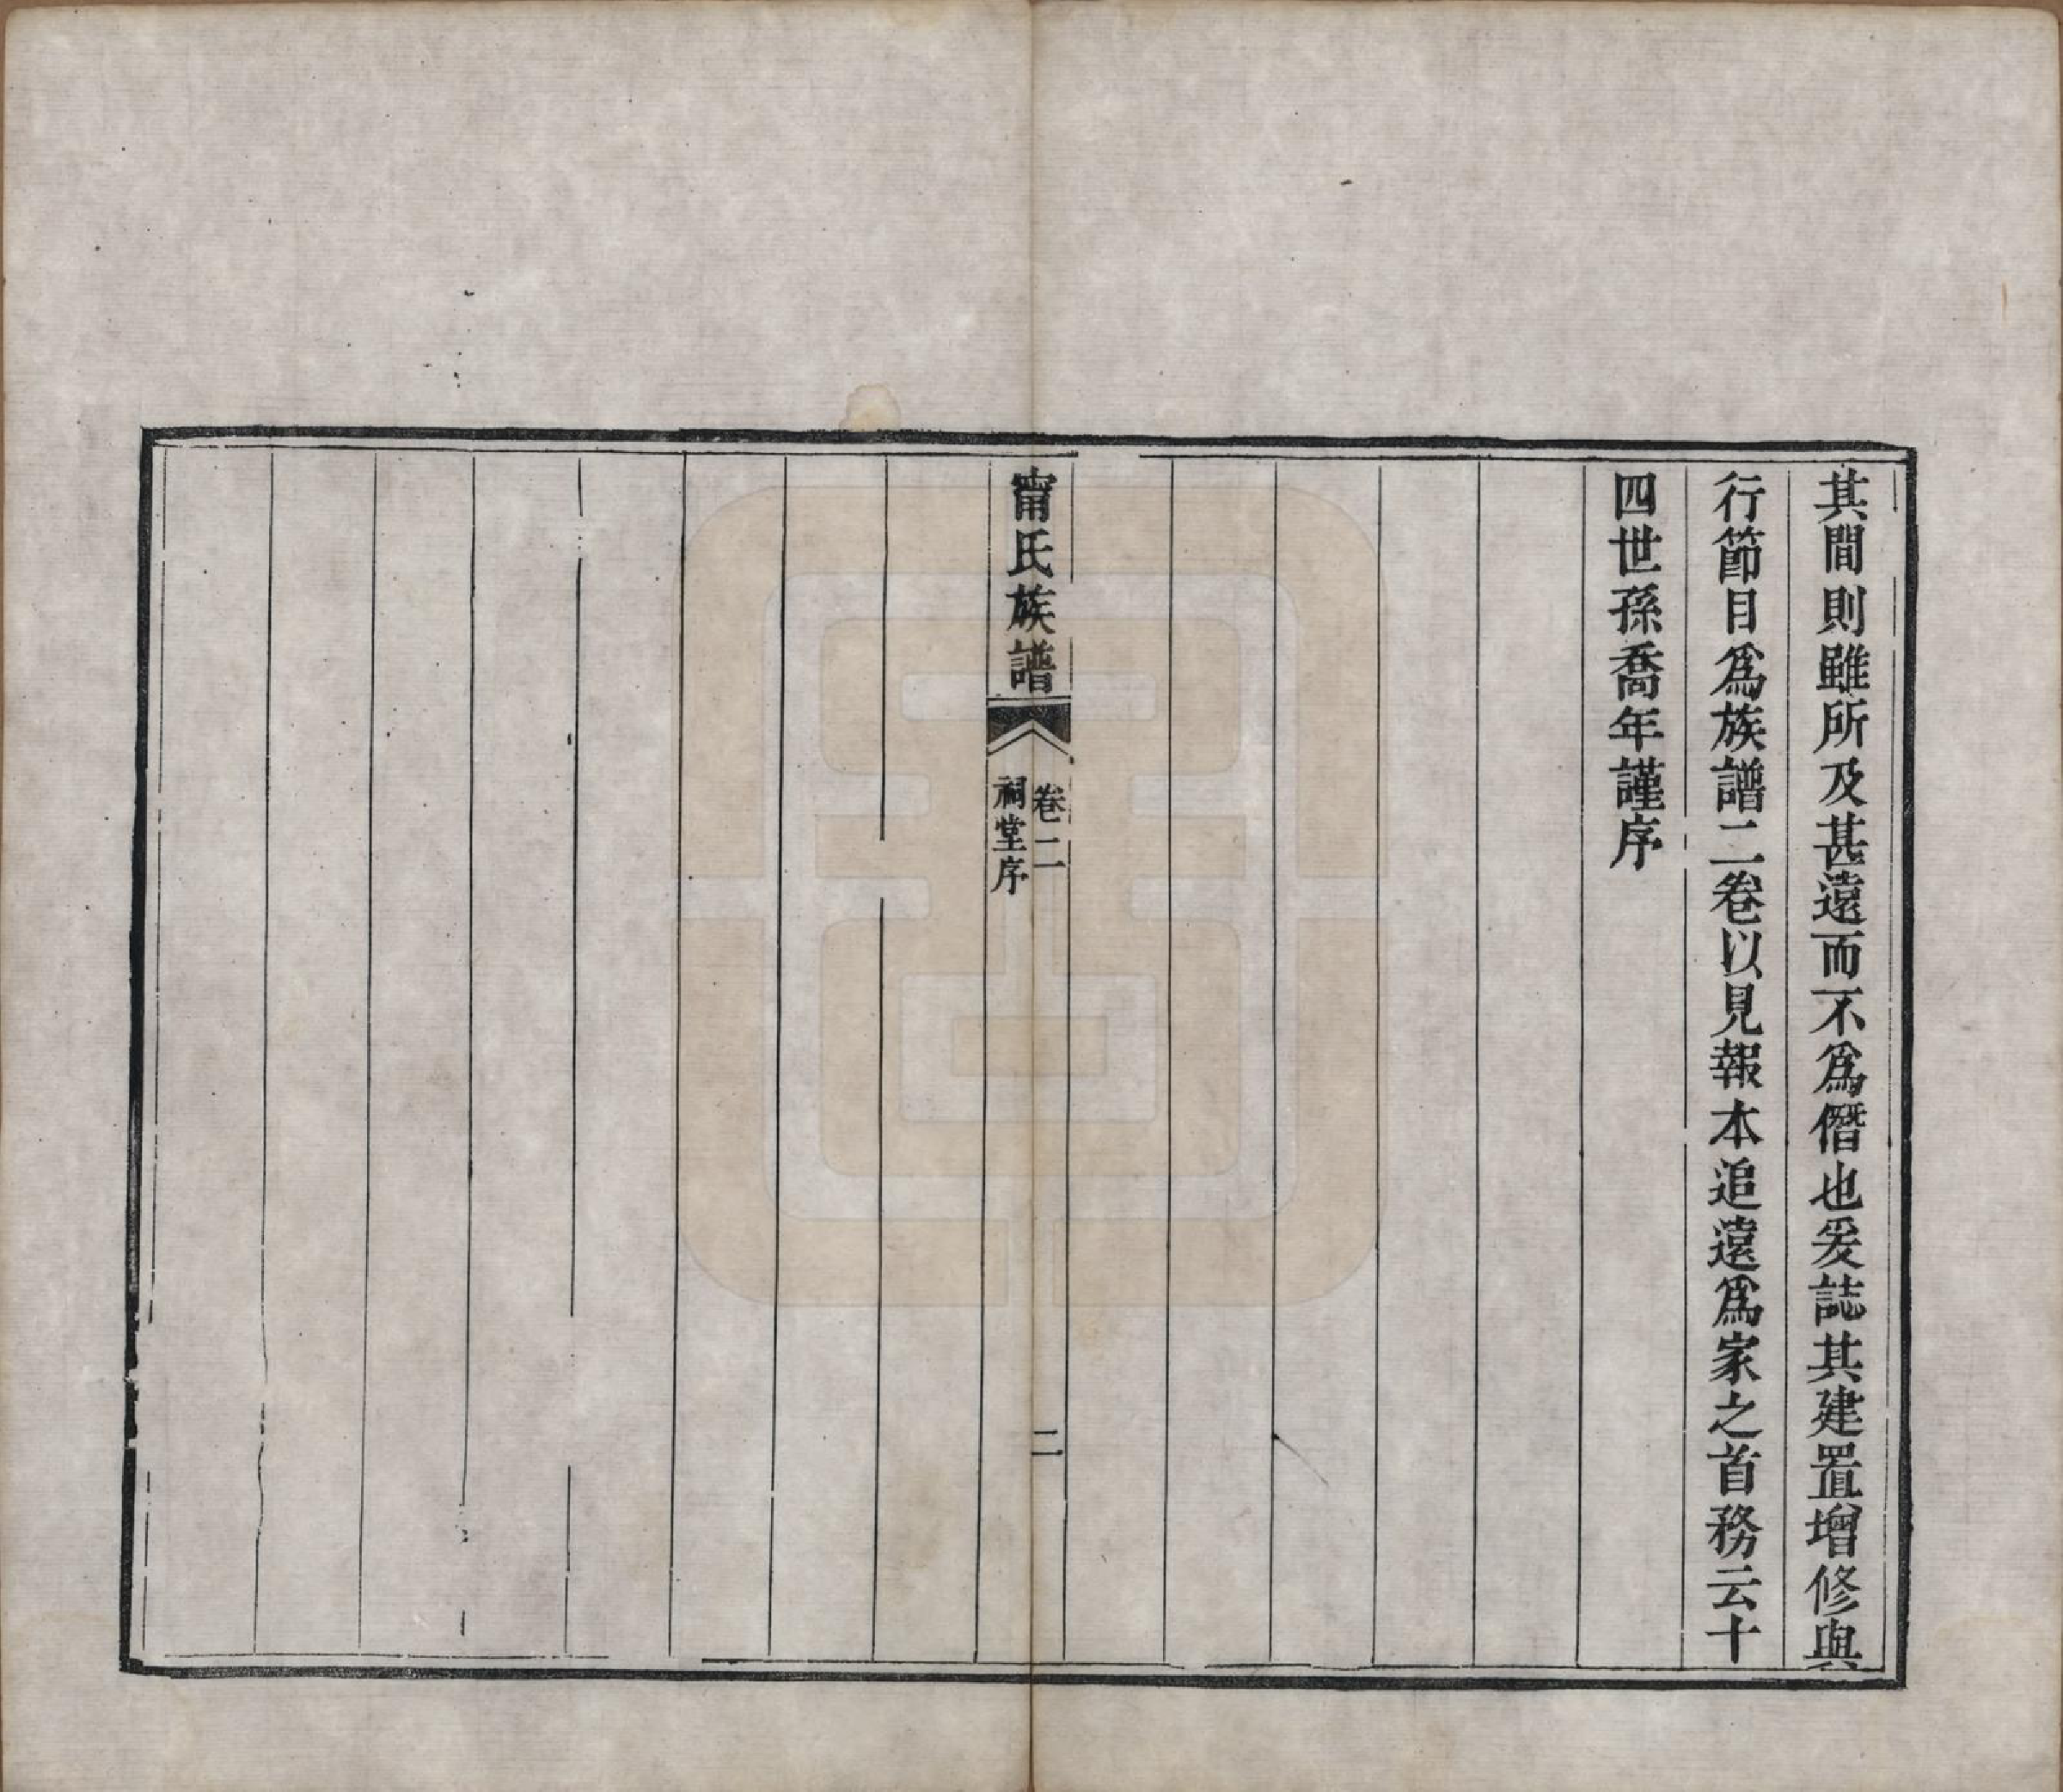 其間則雖所及甚遠而不爲僭也爰誌其建置增修與
行節目爲族譜二卷以見報本追遠爲家之首務云十
四世孫喬年謹序
甯氏族譜
卷二
祠堂序
二